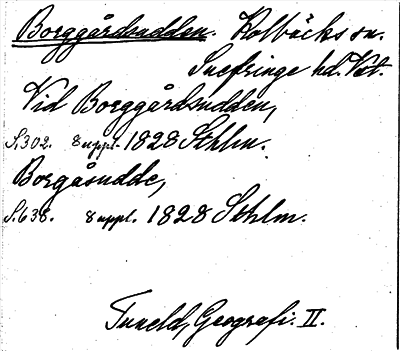 Borggårdsudden. Kolbäcks sn.
Snefringe hd. Vstm.
Vid Borggårdsudden,
S. 302. 8 uppl. 1828 Sthlm.
Borgåsudde,
S. 638. 8 uppl. 1828 Sthlm.
Tuneld, Geografi. II.